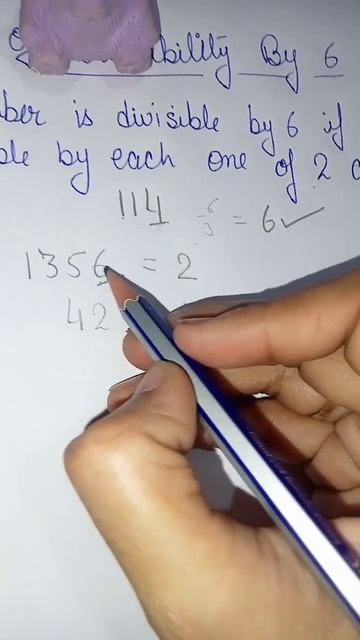 bility By 6
ber is divisible by 6 if
ble by each one of 2
114 6/3 = 6 ✓
1356 = 2
42